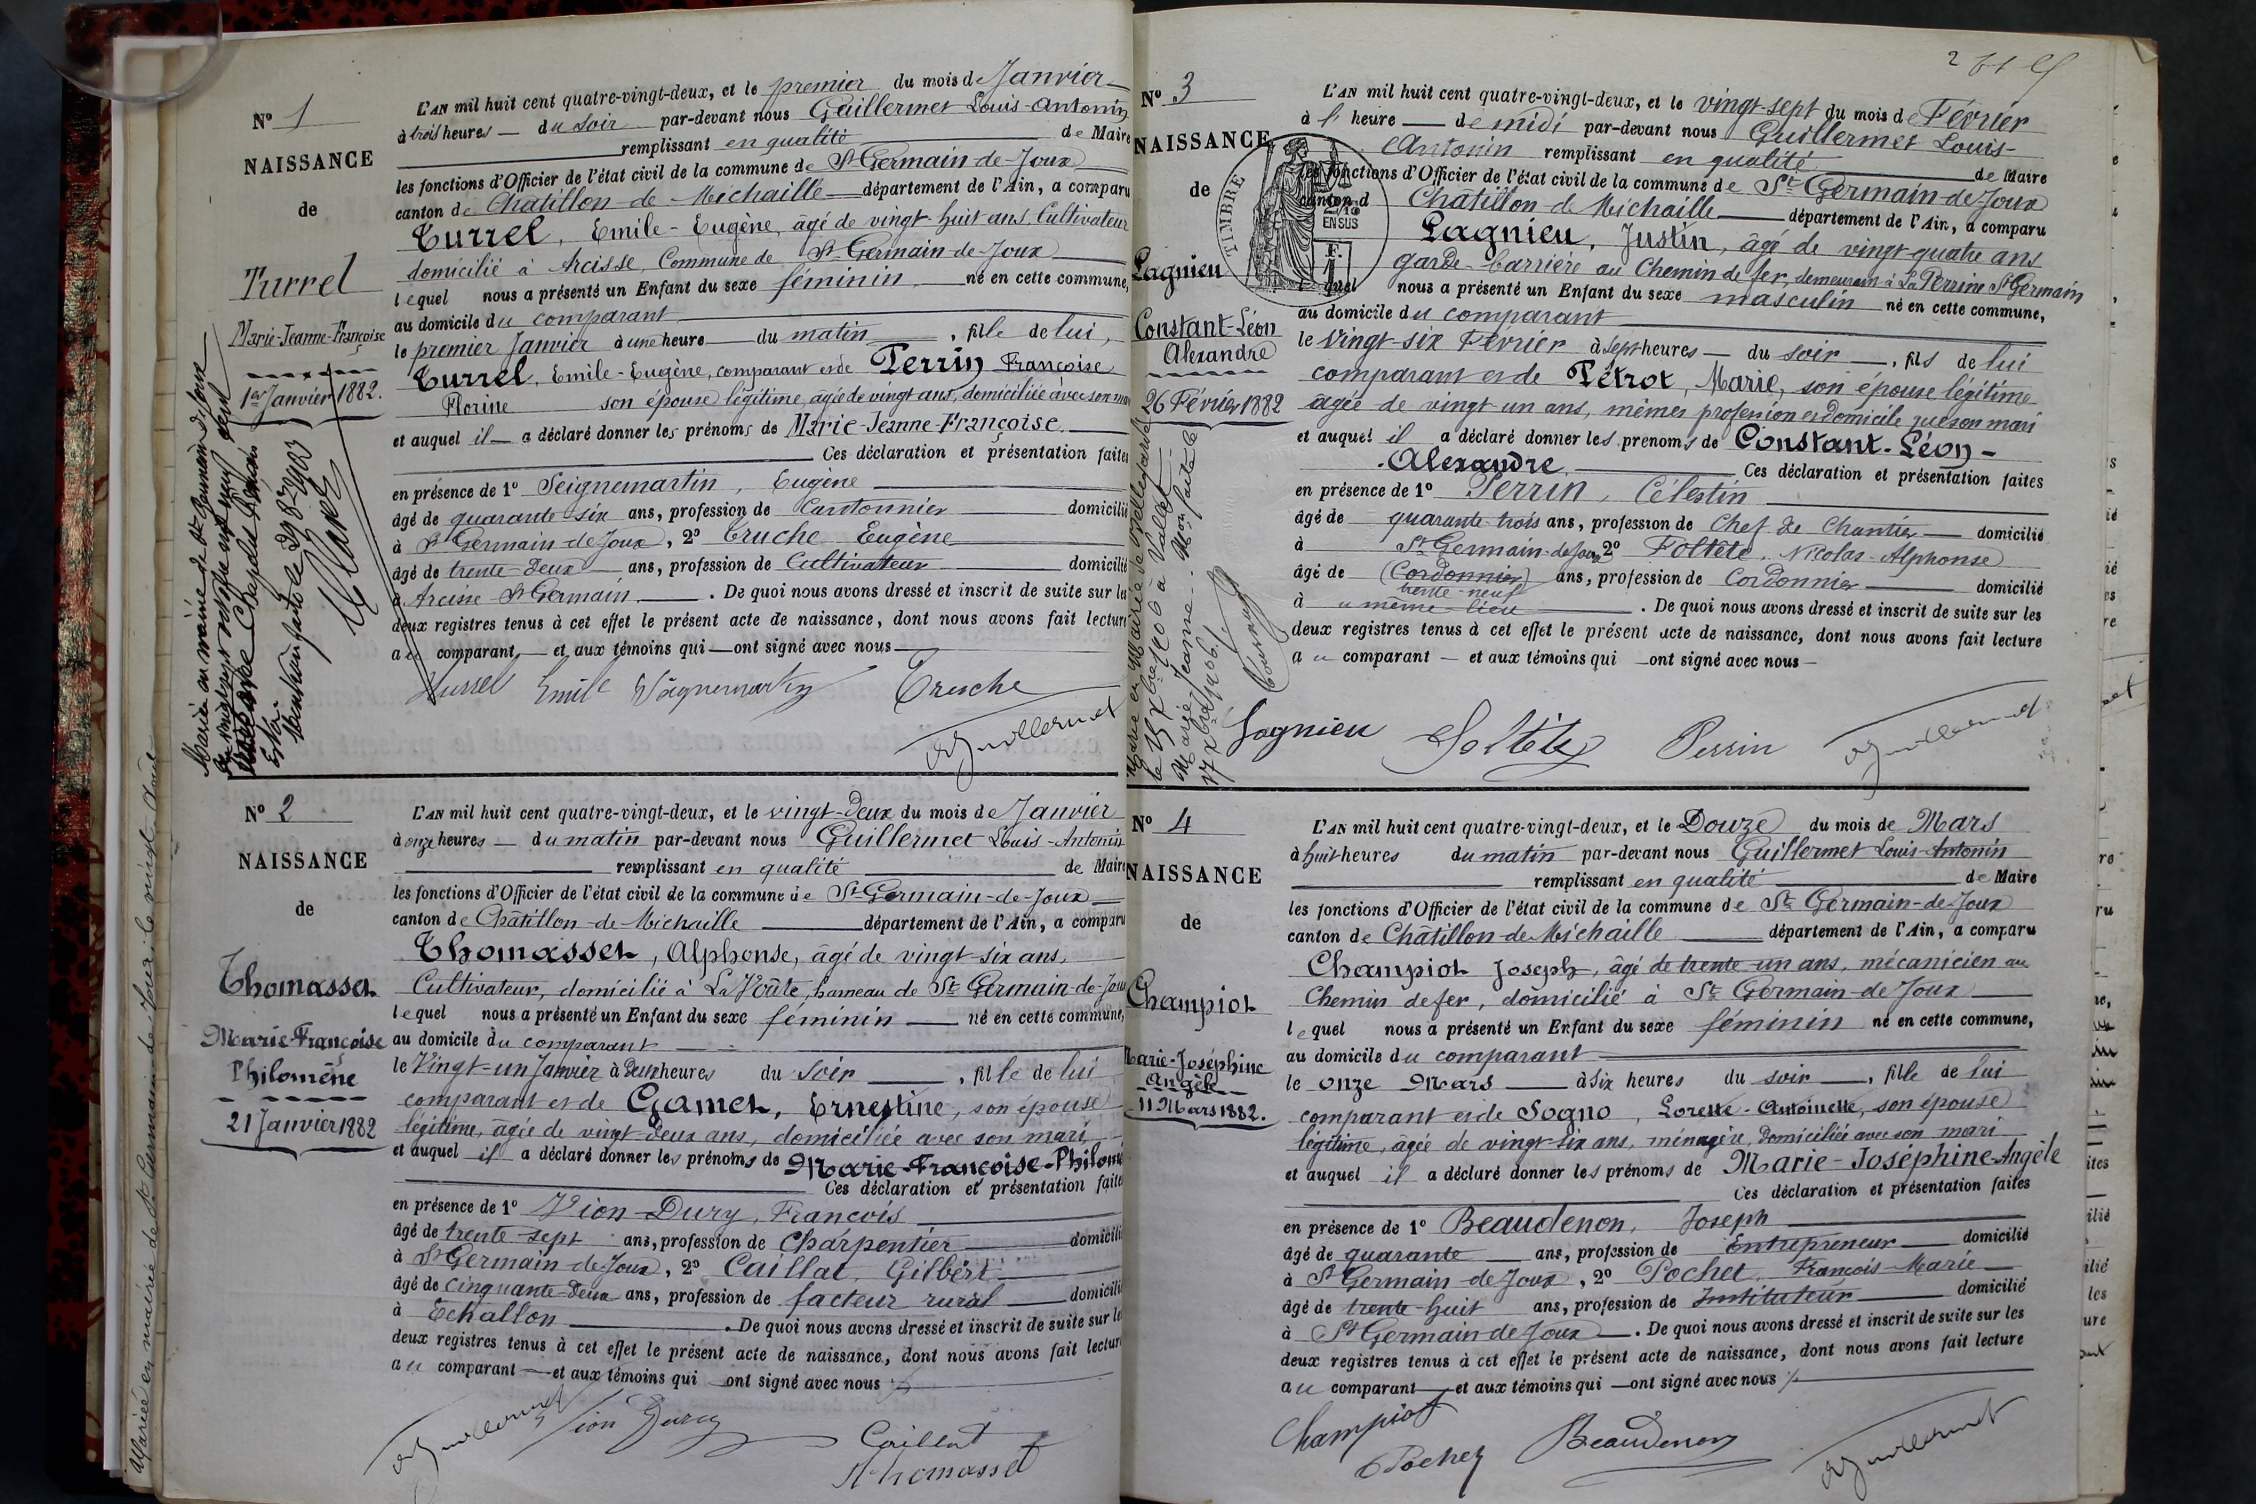 N° 1
NAISSANCE
de
Turrel
Marie-Jeanne-Françoise
1er Janvier 1882.
L'AN mil huit cent quatre-vingt-deux, et le premier du mois de Janvier
à trois heures du soir par-devant nous Guillermet Louis-Antonin
remplissant en qualité de Maire
les fonctions d'Officier de l'état civil de la commune de St Germain-de-Joux
canton de Châtillon-de-Michaille département de l'Ain, a comparu
Turrel, Emile-Eugène, âgé de vingt-huit ans, Cultivateur
domicilié à Arcisse, Commune de St Germain-de-Joux
lequel nous a présenté un Enfant du sexe féminin né en cette commune,
au domicile du comparant
le premier Janvier à une heure du matin, fille de lui,
Turrel, Emile-Eugène, comparant et de Perrin Françoise
Florine son épouse légitime, agée de vingt ans, domiciliée avec son mari
et auquel il a déclaré donner les prénoms de Marie-Jeanne-Françoise.
Ces déclaration et présentation faites
en présence de 1° Seignemartin, Eugène
âgé de quarante six ans, profession de Cantonnier domicilié
à St Germain-de-Joux, 2° Truche Eugène
âgé de trente-deux ans, profession de Cultivateur domicilié
à Arcisse St Germain. De quoi nous avons dressé et inscrit de suite sur les
deux registres tenus à cet effet le présent acte de naissance, dont nous avons fait lecture
au comparant, et aux témoins qui ont signé avec nous
Turrel Emile Seignemartin Truche
Guillermet
Mariée en mairie de St Germain de Joux
Mention faite le 29 8bre 1903
N° 2
NAISSANCE
de
Thomasset
Marie-Françoise
Philomène
21 Janvier 1882
L'AN mil huit cent quatre-vingt-deux, et le vingt-deux du mois de Janvier
à onze heures du matin par-devant nous Guillermet Louis-Antonin
remplissant en qualité de Maire
les fonctions d'Officier de l'état civil de la commune de St Germain-de-Joux
canton de Châtillon-de-Michaille département de l'Ain, a comparu
Thomasset, Alphonse, âgé de vingt-six ans,
Cultivateur, domicilié à La Voûte, hameau de St Germain-de-Joux
lequel nous a présenté un Enfant du sexe féminin né en cette commune,
au domicile du comparant
le Vingt-un Janvier à deux heures du soir, fille de lui
comparant et de Gamet, Ernestine, son épouse
légitime, agée de vingt-deux ans, domiciliée avec son mari,
et auquel il a déclaré donner les prénoms de Marie-Françoise-Philomè
Ces déclaration et présentation faites
en présence de 1° Vion-Dury, François
âgé de trente-sept ans, profession de Charpentier domicilié
à St Germain-de-Joux, 2° Caillat, Gilbert
âgé de cinquante-deux ans, profession de facteur rural domicilié
à Echallon. De quoi nous avons dressé et inscrit de suite sur les
deux registres tenus à cet effet le présent acte de naissance, dont nous avons fait lecture
au comparant et aux témoins qui ont signé avec nous
Guillermet Vion Dury Caillat
Thomasset
Mariée en mairie de St Germain de Joux le vingt Août
N° 3
NAISSANCE
de
Lagnieu
Constant-Léon
Alexandre
26 Février 1882
TIMBRE
EN SUS
L'AN mil huit cent quatre-vingt-deux, et le vingt-sept du mois de Février
à heure de midi par-devant nous Guillermet Louis-
Antonin remplissant en qualité de Maire
les fonctions d'Officier de l'état civil de la commune de St Germain-de-Joux
canton d Châtillon-de-Michaille département de l'Ain, a comparu
Lagnieu, Justin, âgé de vingt-quatre ans
garde-barrière au Chemin de fer, demeurant à La Perrine St Germain
quel nous a présenté un Enfant du sexe masculin né en cette commune,
au domicile du comparant
le Vingt-six Février à sept heures du soir, fils de lui
comparant et de Pétrot, Marie, son épouse légitime
agée de vingt un ans, mêmes profession et domicile que son mari
et auquel il a déclaré donner les prénoms de Constant-Léon-
Alexandre. Ces déclaration et présentation faites
en présence de 1° Perrin, Célestin
âgé de quarante-trois ans, profession de Chef de Chantier domicilié
à St Germain-de-Joux 2° Foltête, Nicolas-Alphonse
âgé de (Cordonnier) ans, profession de Cordonnier domicilié
trente-neuf
à u même lieu. De quoi nous avons dressé et inscrit de suite sur les
deux registres tenus à cet effet le présent acte de naissance, dont nous avons fait lecture
au comparant et aux témoins qui ont signé avec nous
Lagnieu Foltête Perrin Guillermet
N° 4
NAISSANCE
de
Champiot
Marie-Joséphine
Angèle
11 Mars 1882.
L'AN mil huit cent quatre-vingt-deux, et le Douze du mois de Mars
à huit heures du matin par-devant nous Guillermet Louis-Antonin
remplissant en qualité de Maire
les fonctions d'Officier de l'état civil de la commune de St Germain-de-Joux
canton de Châtillon-de-Michaille département de l'Ain, a comparu
Champiot Joseph, âgé de trente-un ans, mécanicien au
Chemin de fer, domicilié à St Germain-de-Joux
lequel nous a présenté un Enfant du sexe féminin né en cette commune,
au domicile du comparant
le onze Mars à six heures du soir, fille de lui
comparant et de Sogno, Lorette-Antoinette, son épouse
légitime, âgée de vingt-six ans, ménagère, domiciliée avec son mari
et auquel il a déclaré donner les prénoms de Marie-Joséphine-Angèle
Ces déclaration et présentation faites
en présence de 1° Beaudenon, Joseph
âgé de quarante ans, profession de Entrepreneur domicilié
à St Germain-de-Joux, 2° Pochet, François-Marie
âgé de trente-huit ans, profession de Instituteur domicilié
à St Germain de Joux. De quoi nous avons dressé et inscrit de suite sur les
deux registres tenus à cet effet le présent acte de naissance, dont nous avons fait lecture
au comparant et aux témoins qui ont signé avec nous
Champiot Pochet Beaudenon Guillermet